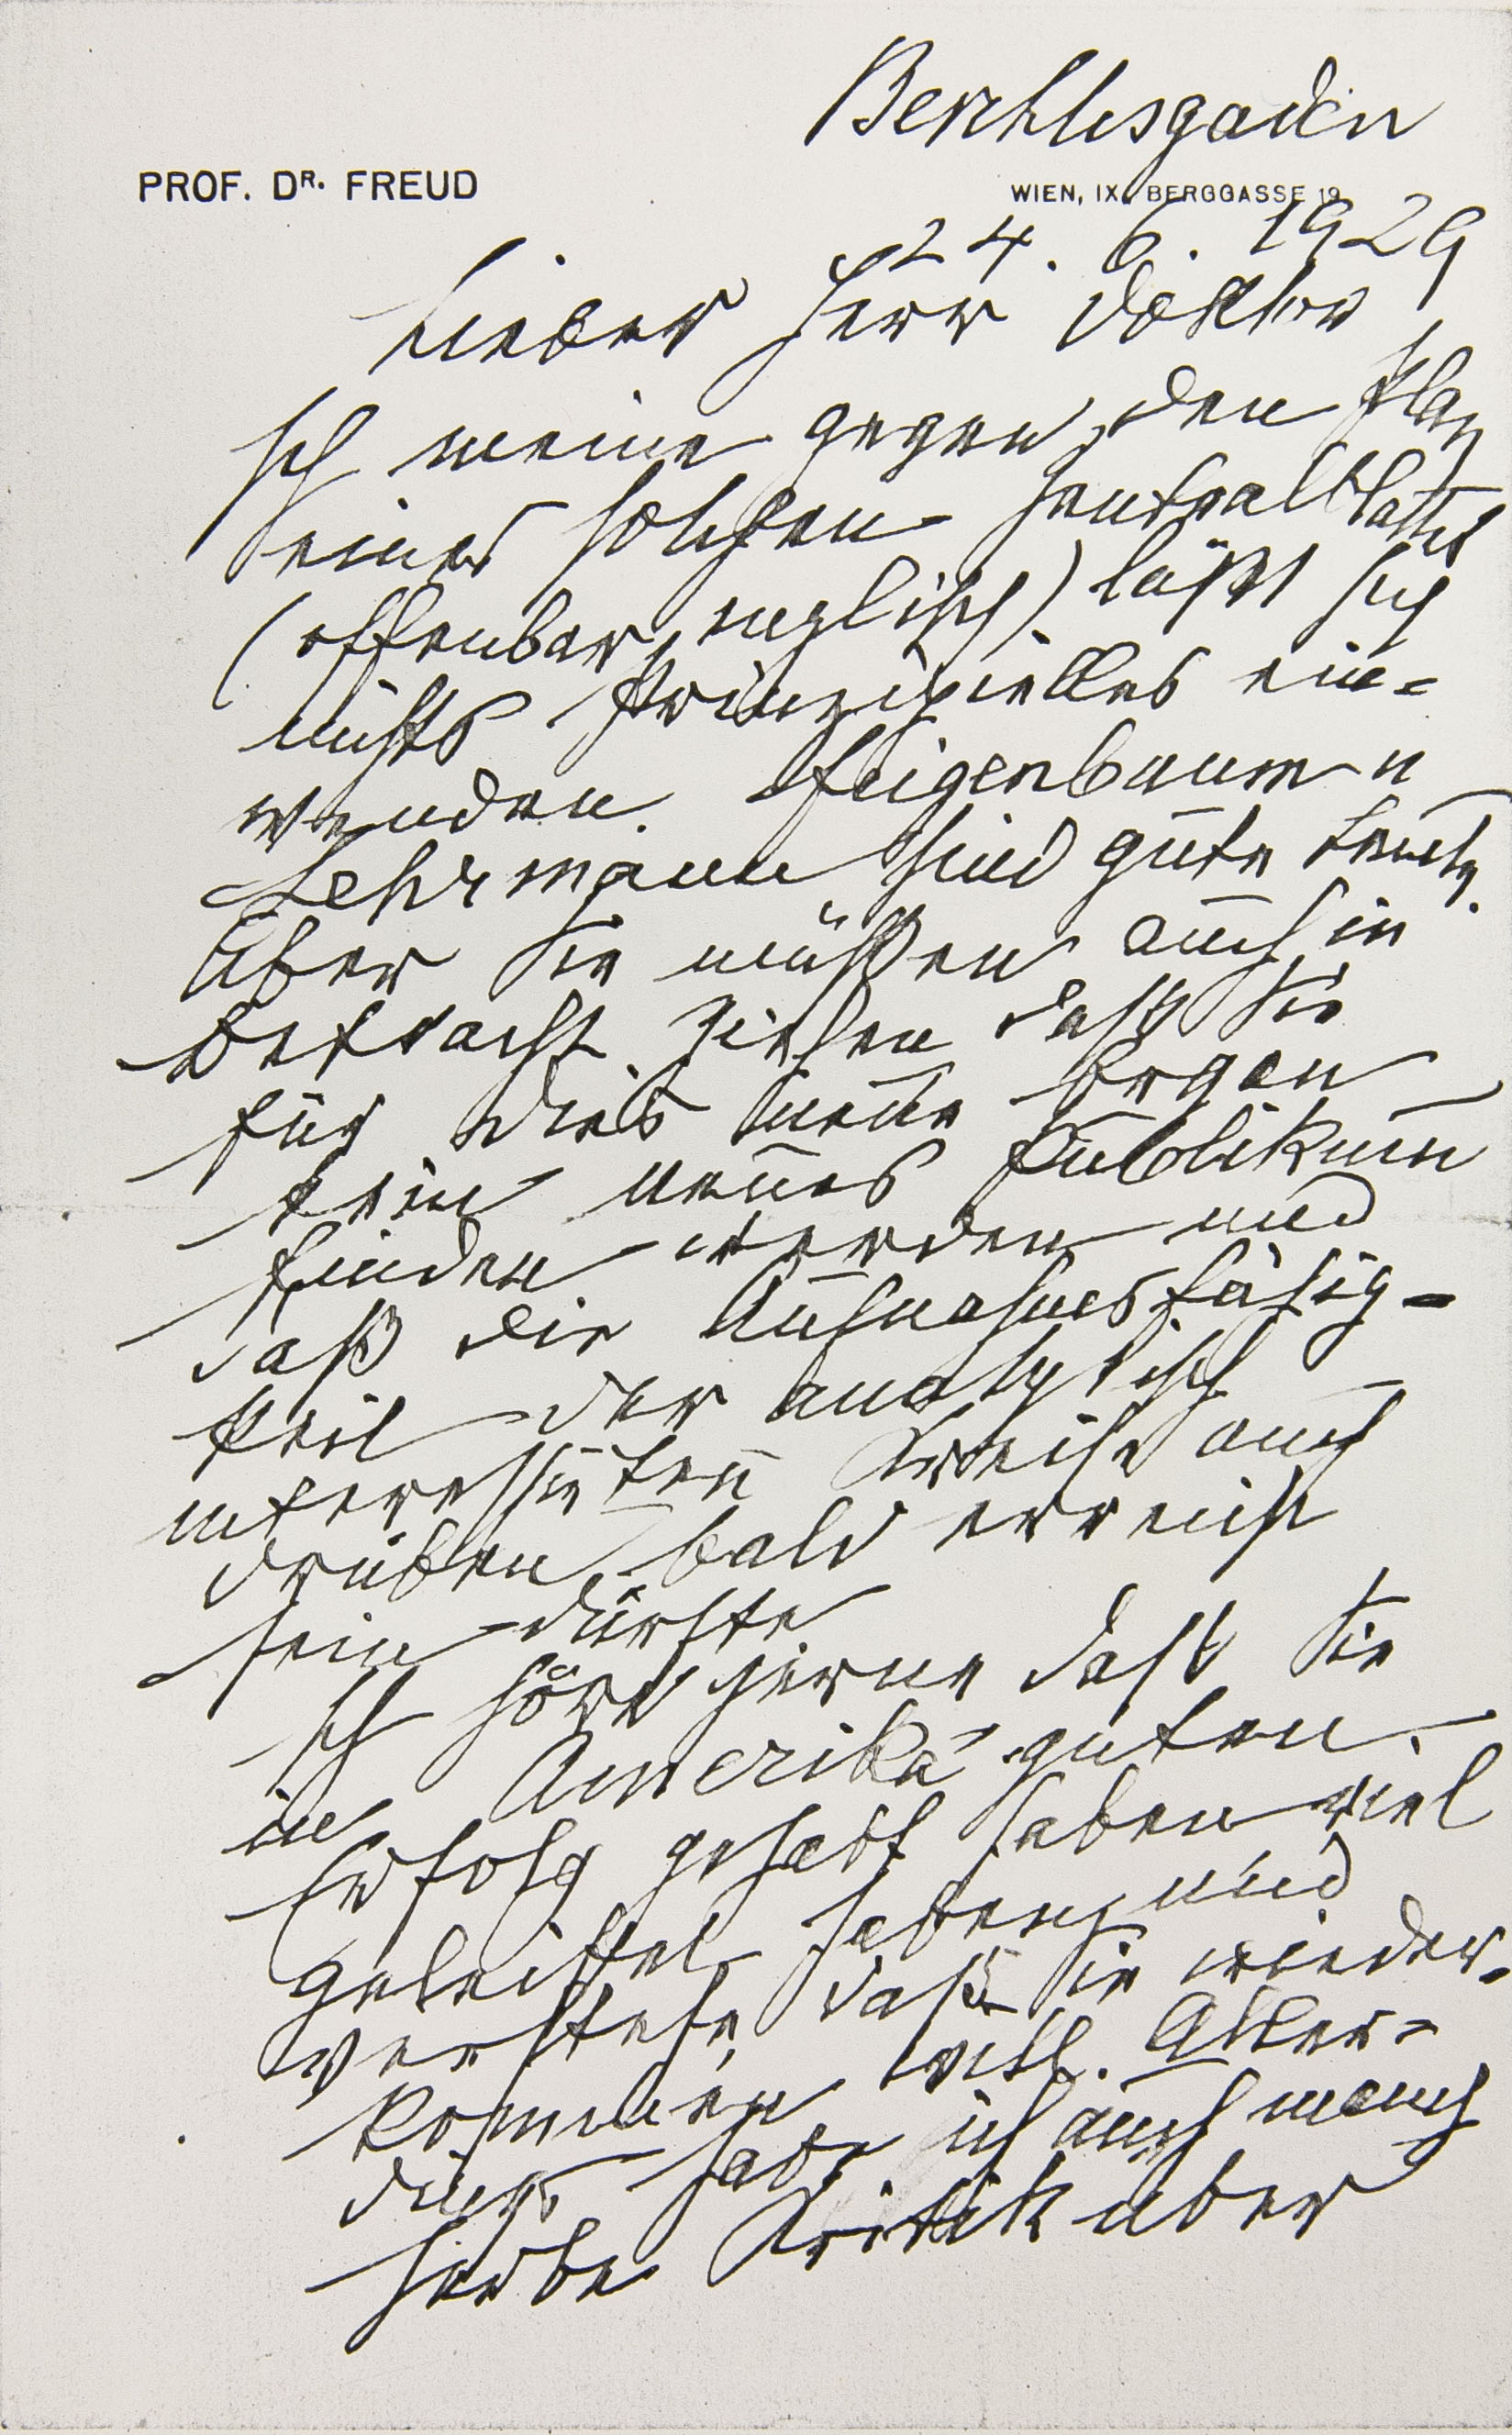 Berchtesgaden
PROF. DR. FREUD
WIEN, IX., BERGGASSE 19.
24. 6. 1929
Lieber Herr Doktor
Ich meine gegen den Plan
eines solchen Zentralblattes
(offenbar englisch) läßt sich
nichts Prinzipielles ein=
wenden. Feigenbaum u
Lehrmann sind gute Leute.
Aber Sie müssen auch in
Betracht ziehen daß Sie
für dies neue Organ
kein neues Publikum
finden werden und
daß die Aufnahmsfähig-
keit der analytisch
interessirten Kreise auch
drüben bald erreicht
sein dürfte
Ich höre gerne daß Sie
in Amerika guten
Erfolg gehabt haben viel
geleistet haben und
verstehe, daß Sie wieder=
kommen will. Aller=
dings habe ich auch manch
herbe Kritik über